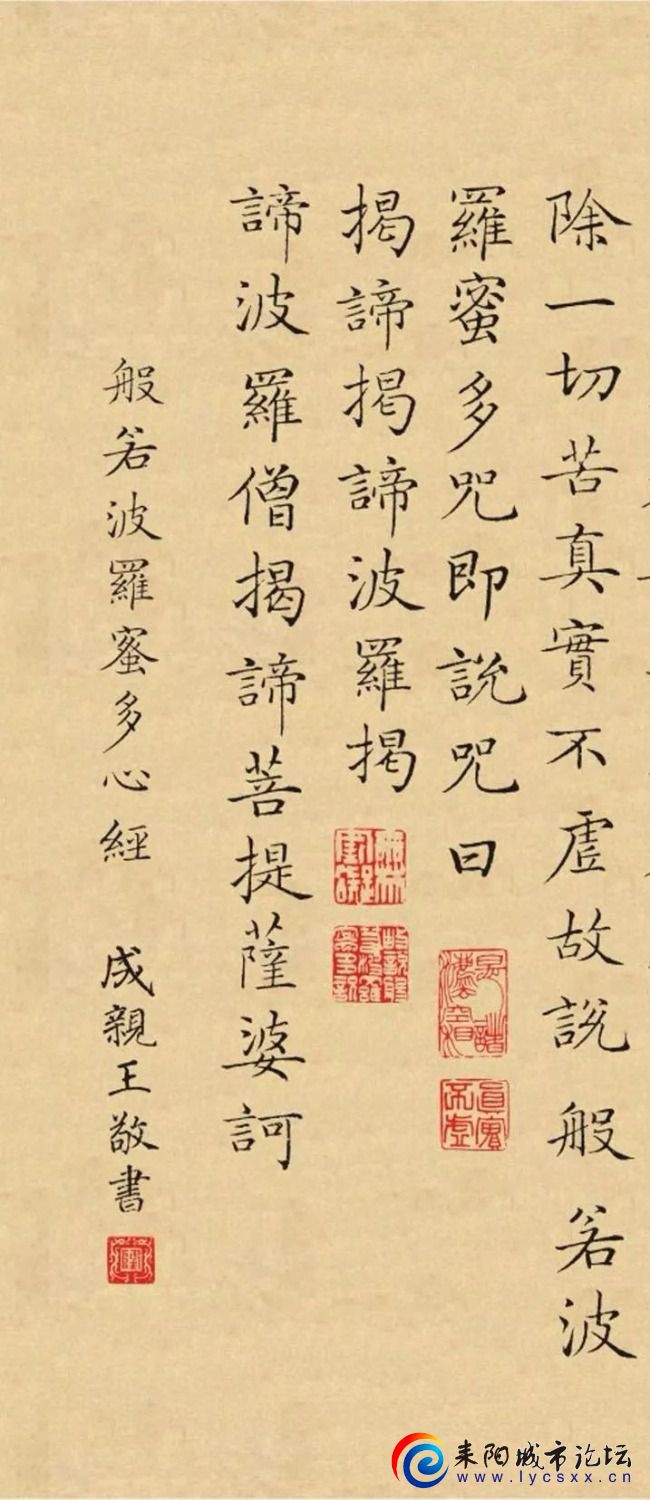 除一切苦真實不虛故說般若波
羅蜜多咒即說咒曰
是諸法空相
真實不虛
揭諦揭諦波羅揭
諦波羅僧揭諦菩提薩婆訶
般若波羅蜜多心經 成親王敬書
耒阳城市论坛
www.lycsxx.cn